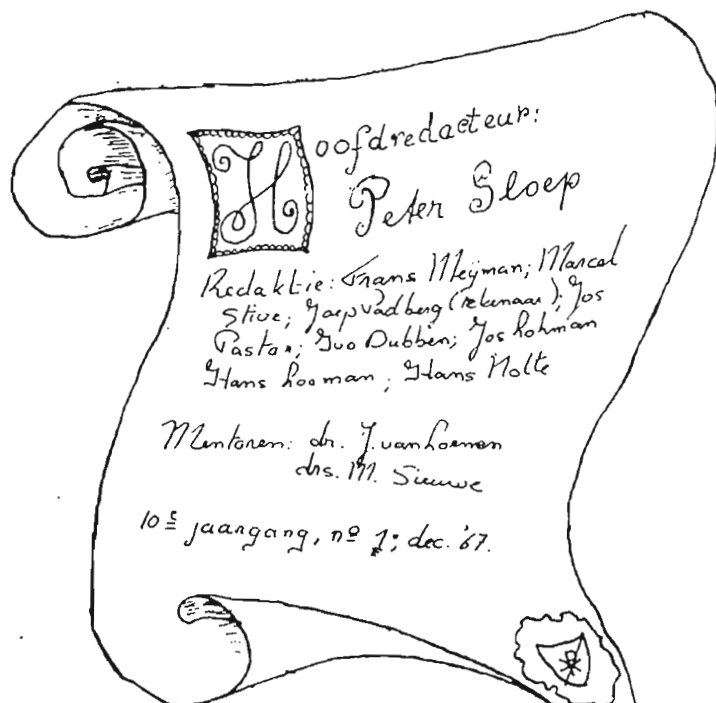 Hoofdredacteur:
Peter Sloep
Redaktie: Frans Meijman; Marcel
Stive; Jaap Vadberg (tekenaar); Jos
Pastor; Ivo Dubben; Jos Lohman
Hans Looman; Hans Nolte
Mentoren: dr. J. van Loenen
drs. M.
10e jaargang, nº 1; dec. '67.